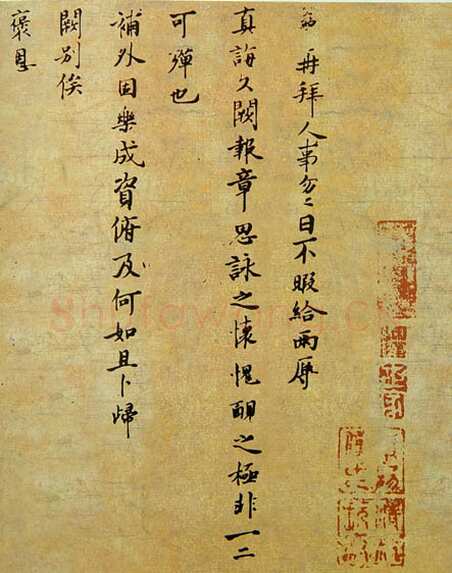 再拜人事勿〻日不暇給兩辱
真誨久闕報章思詠之懷愧靦之極非一二
可殫也
補外因樂成資俯及何如且卜歸
闕別俟
褒恩